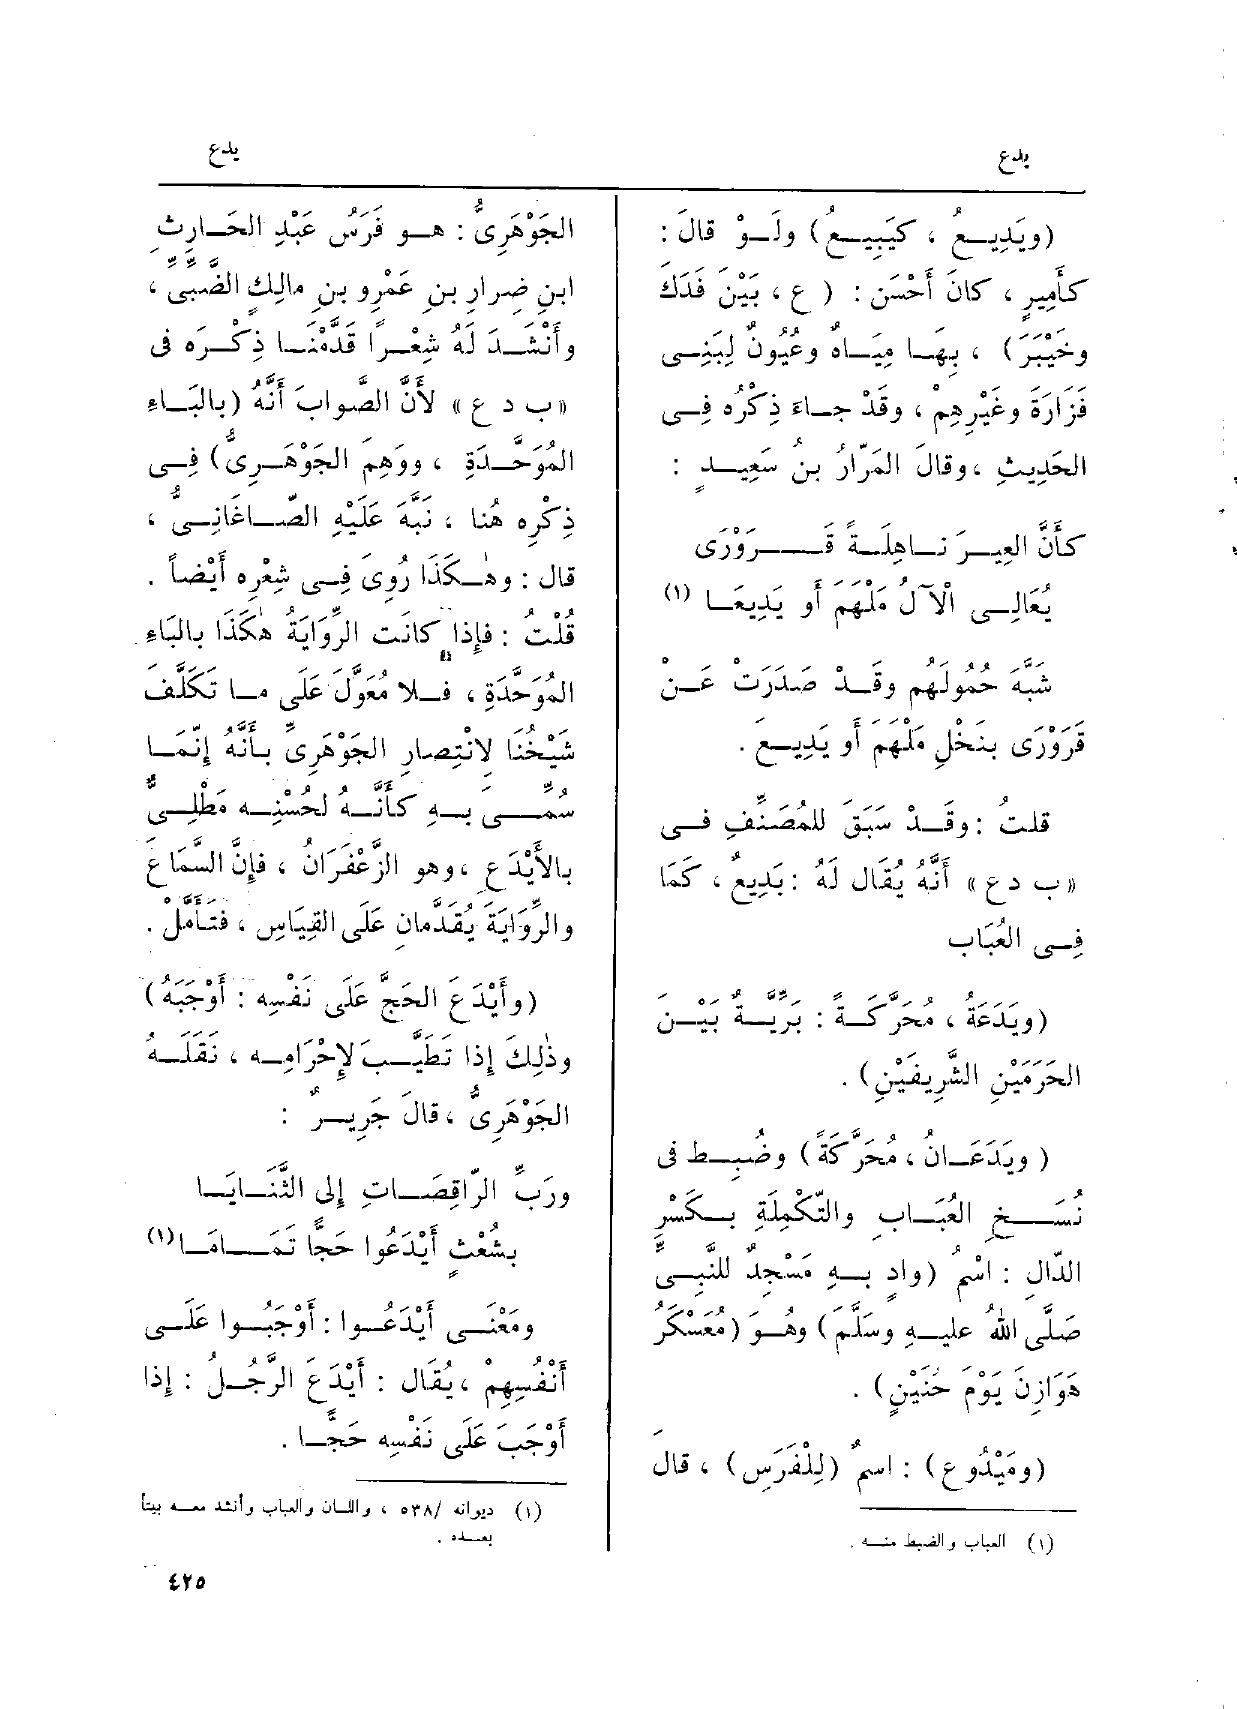 يدع
يدع
(ويَدِيــعُ ، كيَبِيــعُ) ولَــوْ قالَ :
كأَمِيرٍ ، كانَ أَحْسَن : ( ع ، بَيْنَ فَدَكَ
وخَيْبَرَ) ، بِهــا مِيَــاهٌ وعُيُونٌ لِبَنِــى
فَزَارَةَ وغَيْرِهِمْ ، وقَدْ جــاءَ ذِكْرُه فِــى
الحَدِيثِ ، وقالَ المَرّارُ بنُ سَعِيــدٍ :
كأَنَّ العِيــرَ نــاهِلَــةً قَــرَوْرَى
يُعَالِــى الْآلُ مَلْهَمَ أَو يَدِيعَــا (١)
شَبَّهَ حُمُولَهُم وقَــدْ صَدَرَتْ عَــنْ
قَرَوْرَى بنَخْلِ مَلْهَم أَو يَدِيــعَ .
قلتُ : وقَــدْ سَبَقَ للمُصَنِّفِ فــى
«ب د ع» أَنَّهُ يُقَال لَهُ : بَدِيعٌ ، كَمَا
فِــى العُبَاب
(ويَدَعَة ، مُحَرَّكــةً : بَرِّيَّــةٌ بَيْــنَ
الحَرَمَيْنِ الشَّرِيفَيْنِ) .
( ويَدَعَــانُ ، مُحَرَّكَةً) وضُبِــط فى
نُســخِ العُبَــابِ والتَّكْمِلَةِ بــكَسْرِ
الدّال : اسْمُ (وادٍ بــهِ مَسْجِدٌ للنَّبِــىِّ
صَلَّى اللهُ عليــه وسَلَّم) وهُــوَ (مُعَسْكَرُ
هَوَازِنَ يَوْمَ حُنَيْنٍ) .
(ومَيْدُوع) : اسمُ (لِلْفَرَسِ) ، قال
(١) العباب والضبط منــه .
الجَوْهَرِىُّ : هــو فَرَسُ عَبْدِ الحَــارِثِ
ابنِ ضِرارِ بنِ عَمْرِو بنِ مالِكٍ الضَّبِّىِّ ،
وأَنْشَــدَ لَهُ شِعْــرًا قَدَّمْنَــا ذِكْــرَه فى
«ب د ع» لأَنَّ الصَّوابَ أَنَّهُ (بالبَــاءِ
المُوَحَّــدَةِ ، ووَهِمَ الجَوْهَــرِىُّ) فِــى
ذِكْرِه هُنا ، نَبَّهَ عَلَيْهِ الصّــاغانِــىُّ ،
قال : وهٰــكَذَا رُوِىَ فِــى شِعْرِه أَيْضاً .
قُلْتُ : فإِذا كانت الرِّوَايَةُ هٰكَذَا بالبَاءِ
المُوَحَّدَةِ ، فــلا مُعَوَّلَ عَلَى مــا تَكَلَّفَ
شَيْخُنَا لانْتِصارِ الجَوْهَرِىِّ بأَنَّهُ إِنَّمَــا
سُمِّــىَ بــهِ كأَنَّــهُ لحُسْنِــه مَطْلِــىٌّ
بالأَيْدَعِ ، وهو الزَّعْفَرَانُ ، فإِنَّ السَّمَاعَ
والرِّوَايَةَ يُقَدَّمانِ عَلَى القِيَاسِ ، فتَأَمَّلْ .
(وأَيْدَعَ الحَجَّ عَلَى نَفْسِه : أَوْجَبَهُ)
وذٰلِكَ إِذا تَطَيَّــبَ لإِحْرَامِــه ، نَقَلَــهُ
الجَوْهَرِىُّ ، قالَ جَرِيــرٌ :
ورَبِّ الرّاقِصَــاتِ إِلى الثَّنَــايَــا
بشُعْثٍ أَيْدَعُوا حَجًّا تَمَــامَــا(١)
ومَعْنَــى أَيْدَعُــوا : أَوْجَبُــوا عَلَــى
أَنْفُسِهِمْ ، يُقَال : أَيْدَعَ الرَّجُــلُ : إِذا
أَوْجَبَ عَلَى نَفْسِه حَجًّــا .
(١) ديوانه /٥٣٨ ، واللسان والعباب وأنشد معــه بيتاً
بعــده .
٤٢٥